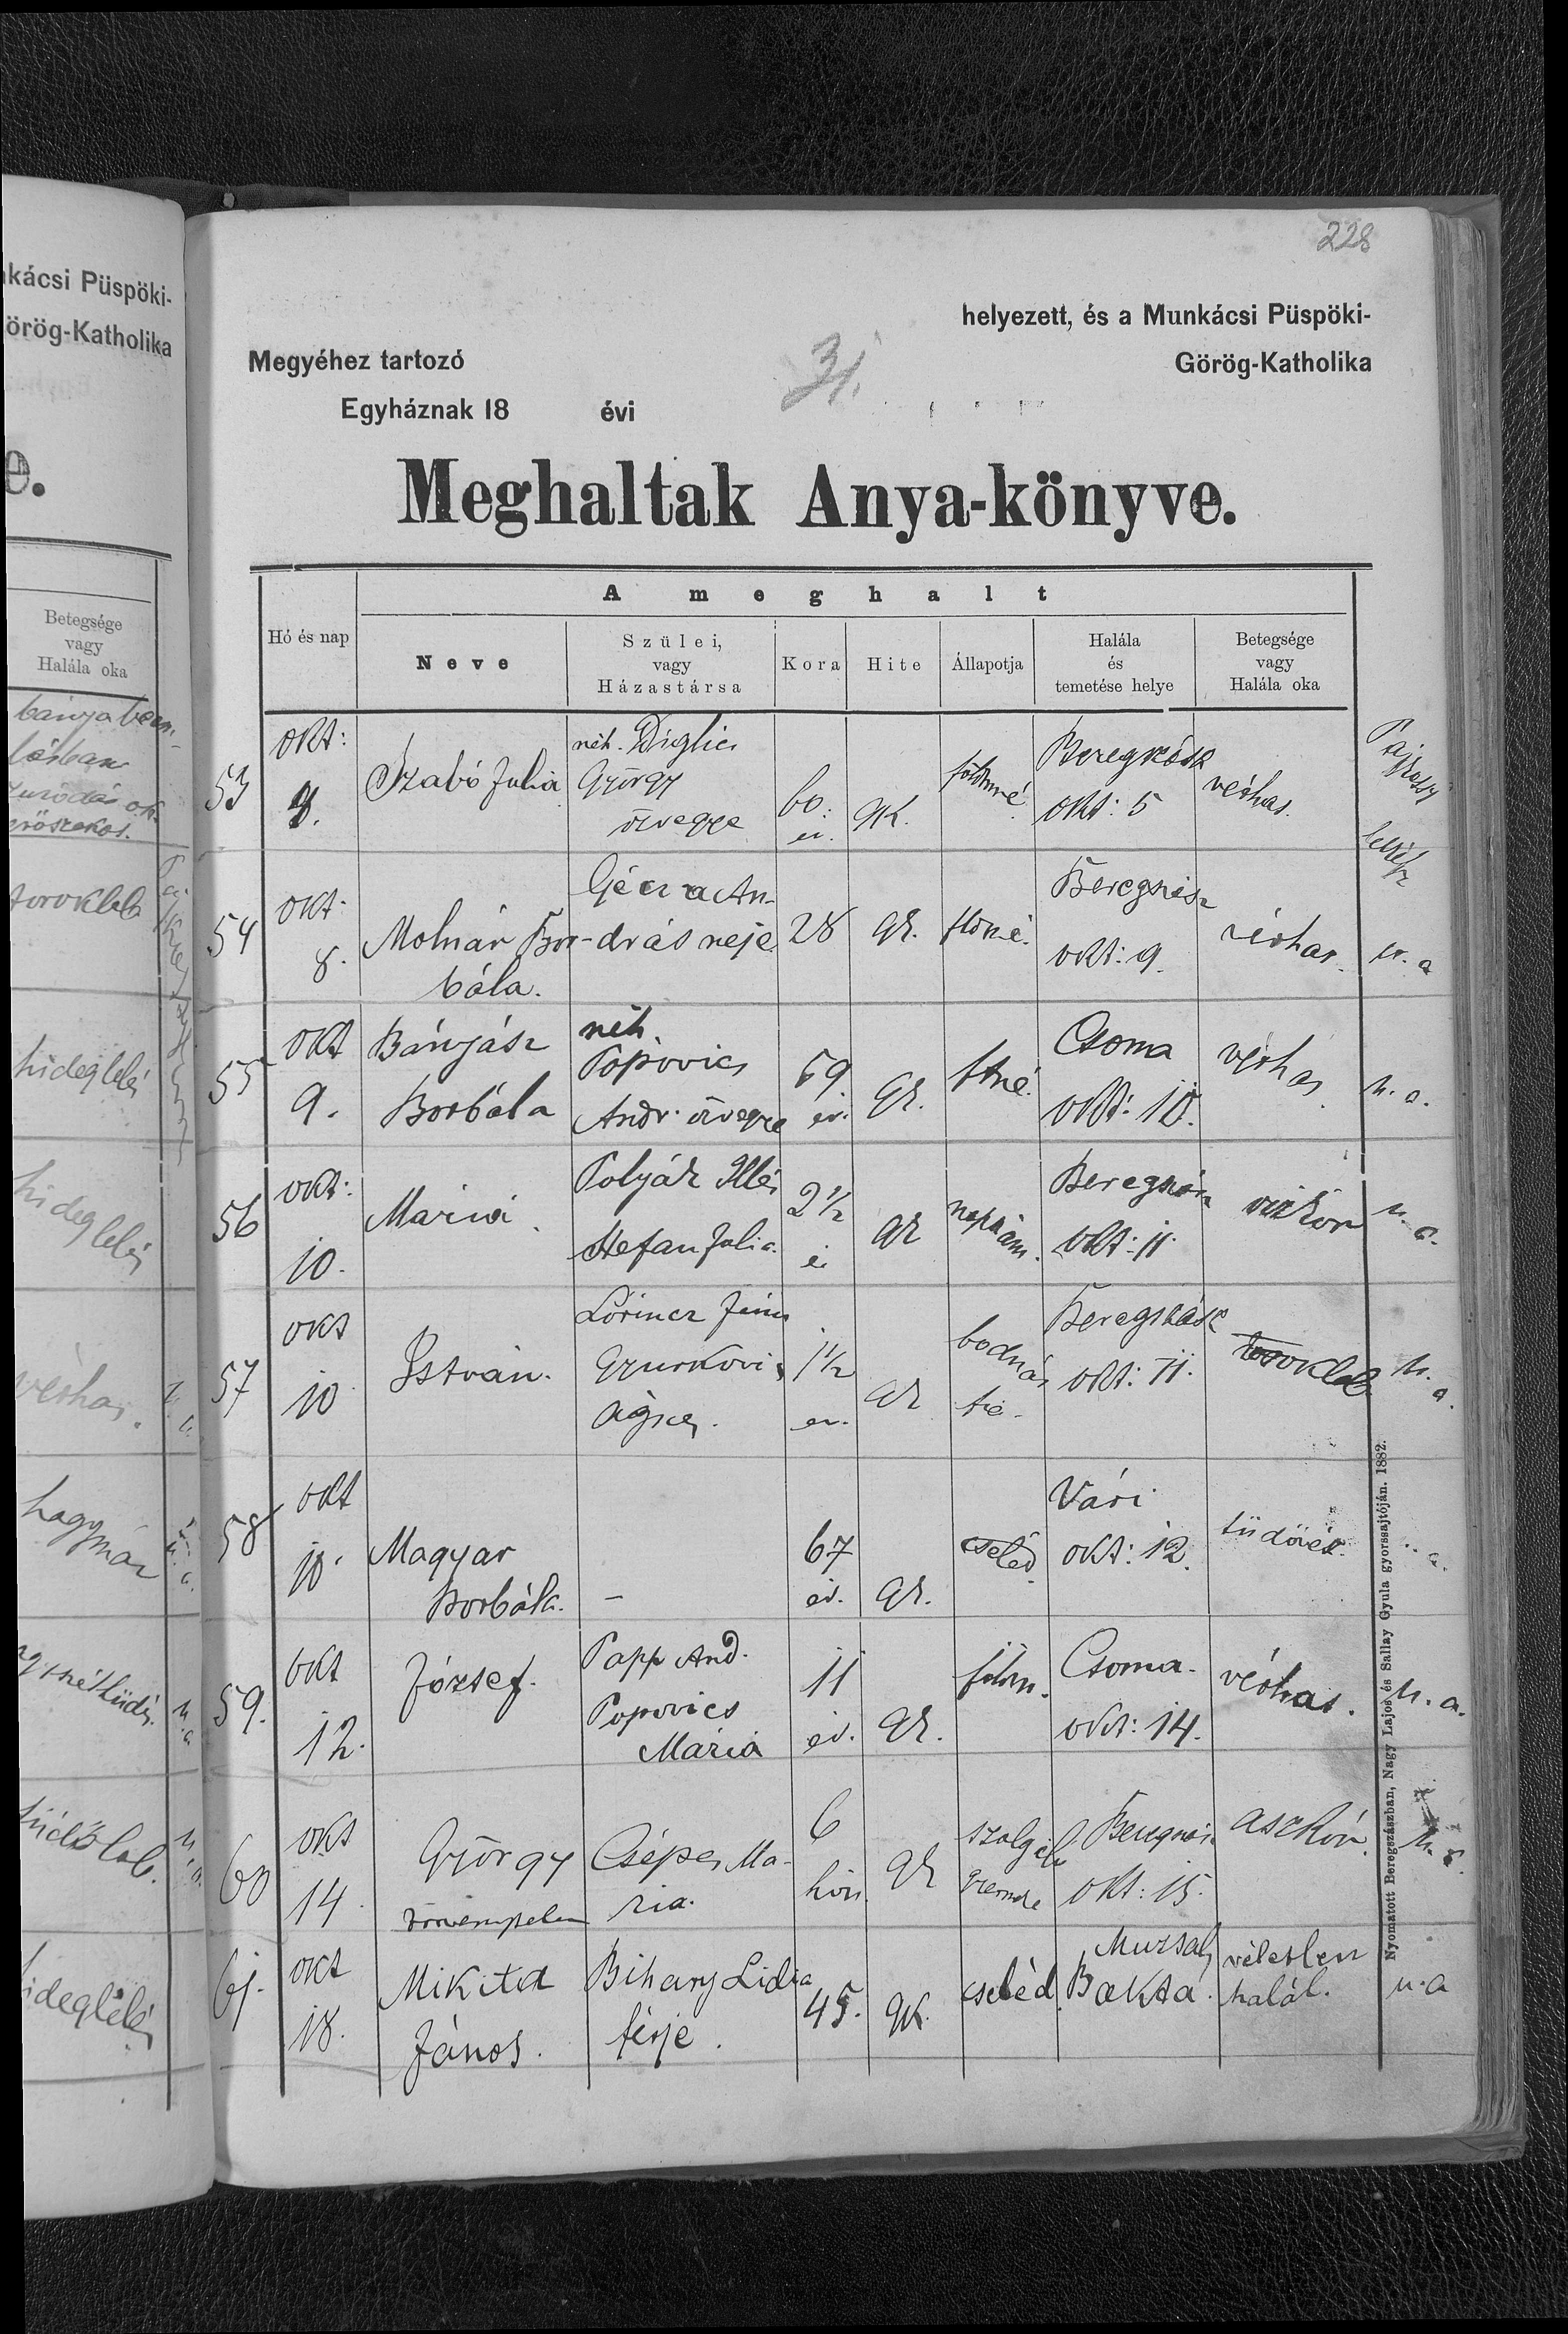 228
nkácsi Püspöki-
örög-Katholika
e.
Betegsége
vagy
Halála oka
bánya
torokleb
hideglelés
hideglelés
vérhas.
hagymáz
tüdőlob.
hideglelés
helyezett, és a Munkácsi Püspöki-
Megyéhez tartozó
31.
Görög-Katholika
Egyháznak 18 évi
Meghaltak Anya-könyve.
A meghalt
Hó és nap
Neve
Szülei,
vagy
Házastársa
Kora
Hite
Állapotja
Halála
és
temetése helye
Betegsége
vagy
Halála oka
53
okt:
Szabó Julia
néh.
György
özvegye
60.
év.
gk.
Beregszász
okt: 5
vérhas.
54
okt.
8.
Molnár Bor-
bála.
Gécza An-
drás neje
28
gk.
Beregszász
okt: 9.
vérhas.
u. a
55
okt
9.
Bányász
Borbála
néh.
Popovics
Andr. özvegye
69
év.
gk.
Csoma
okt: 10.
vérhas.
u. a.
56
okt:
10.
Mária.
Polyák Illés
Stefan Julia.
2 1/2
é.
gk
napszám.
Beregszász
okt: 11.
vízkór
u. a.
57
okt
10
István.
Lőrincz János
Gyurkovics
Ágnes.
1 1/2
év.
gk
bodnár
Beregszász
okt: 11.
toroklob
u. a.
58
okt
10.
Magyar
Borbála.
–
67
év.
gk.
cseléd.
Vári
okt: 12.
tüdővész.
u. a.
59.
okt
12.
József.
Papp And.
Popovics
Mária
11
év.
gk.
földm.
Csoma.
okt: 14.
vérhas.
u. a.
60
okt
14.
György
törvénytelen
Csépes Má-
ria.
6
hón.
gk
szolgáló
gyermeke
Beregszász
okt: 15.
aszkór.
u. a.
61.
okt
18.
Mikita
János.
Bihary Lidia
férje.
45.
gk.
cseléd.
Muzsaly
Bakta.
véletlen
halál.
u. a
Nyomatott Beregszászban, Nagy Lajos és Sallay Gyula gyorssajtóján. 1882.